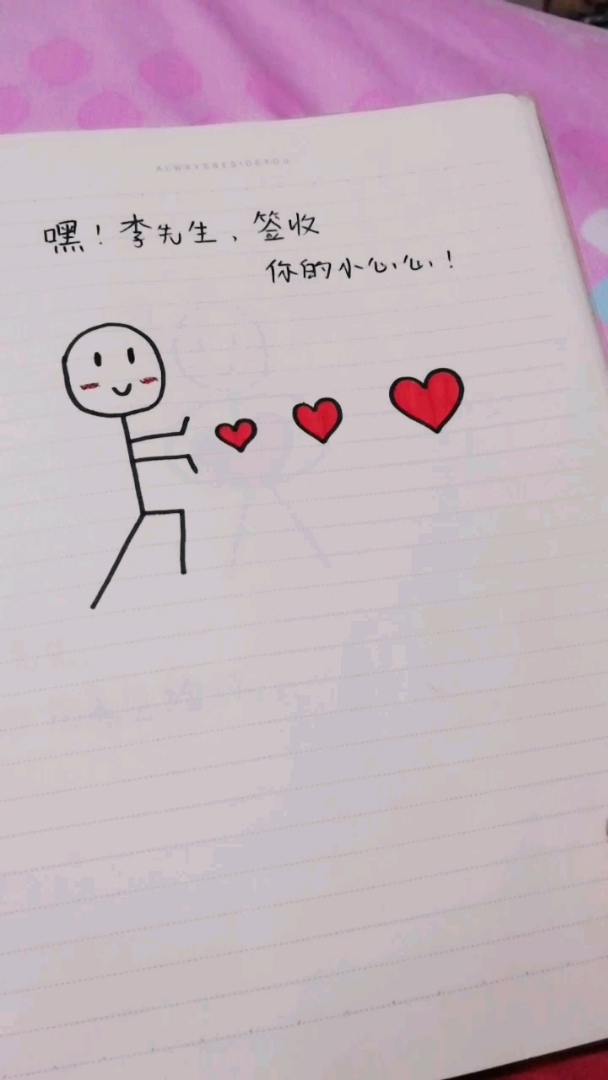 ALWAYSBESIDEYOU
嘿！李先生、签收
你的小心心！